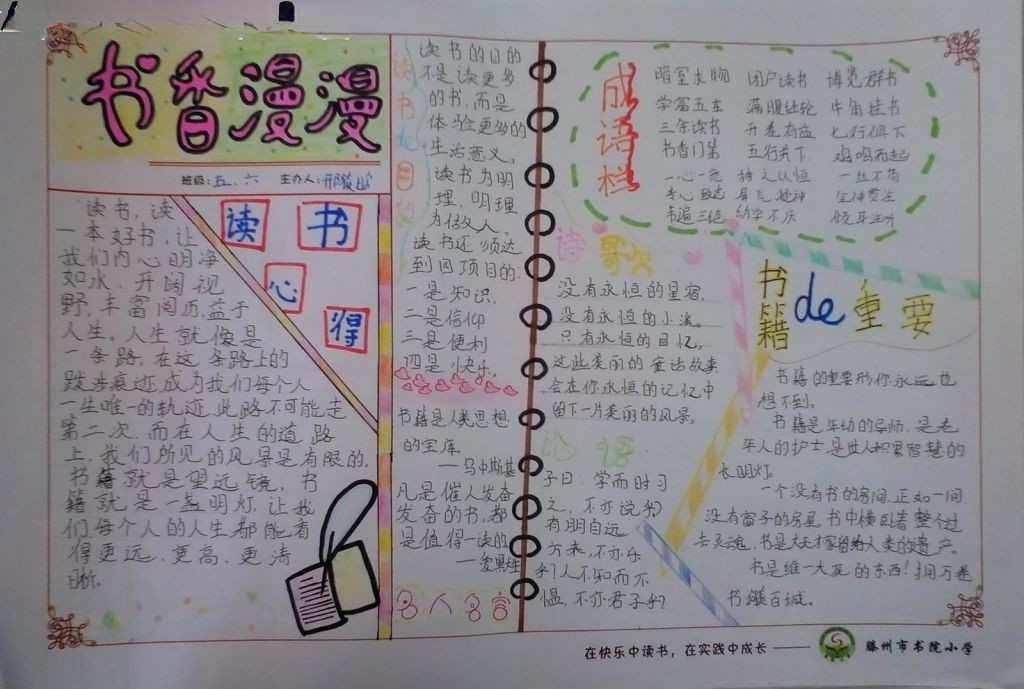 书香漫漫
班级:五、六 主办人:
读书心得
读书,读
一本好书,让
我们内心明净
如水,开阔视
野,丰富阅历,益于
人生。人生就像是
一条路,在这条路上的
跋涉痕迹,成为我们每个人
一生唯一的轨迹,此路不可能走
第二次,而在人生的道路
上,我们所见的风景是有限的,
书籍就是望远镜,书
籍就是一盏明灯,让我
们每个人的人生都能看
得更远、更高、更清
晰。
读书de目的
读书的目的
不是读更多
的书,而是
体验更多的
生活意义。
读书为明
理,明理
为做人。
读书还须达
到四项目的:
一是知识,
二是信仰
三是便利
四是快乐。
书籍是人类思想
的宝库。
——马申斯基
凡是催人发奋
发奋的书,都
是值得一读的
——爱默生
名人名言
成语栏
暗室求物 闭户读书 博览群书
学富五车 满腹经纶 牛角挂书
三余读书 开卷有益 七行俱下
书香门第 五行并下 鸡鸣而起
一心一意 持之以恒 一丝不苟
专心致志 屏气凝神 全神贯注
韦编三绝 幼学不厌 倾耳注听
读歌
没有永恒的星宿,
没有永恒的小溪。
只有永恒的回忆。
这些美丽的童话故事
会在你永恒的记忆中
留下一片美丽的风景。
论语
子曰:学而时习
之,不亦说乎
有朋自远
方来,不亦乐
乎?人不知而不
愠,不亦君子乎?
书籍de重要
书籍的重要形你永远也
想不到。
书籍是年幼的导师,是老
年人的护士,是世人积累智慧的
长明灯。
一个没有书的房间,正如一间
没有窗子的房屋 书中横卧着整个过
去灵魂,书是天才留给人类的遗产。
书是维一不死的东西!拥万卷
书籍百城。
在快乐中读书,在实践中成长——
滕州市书院小学